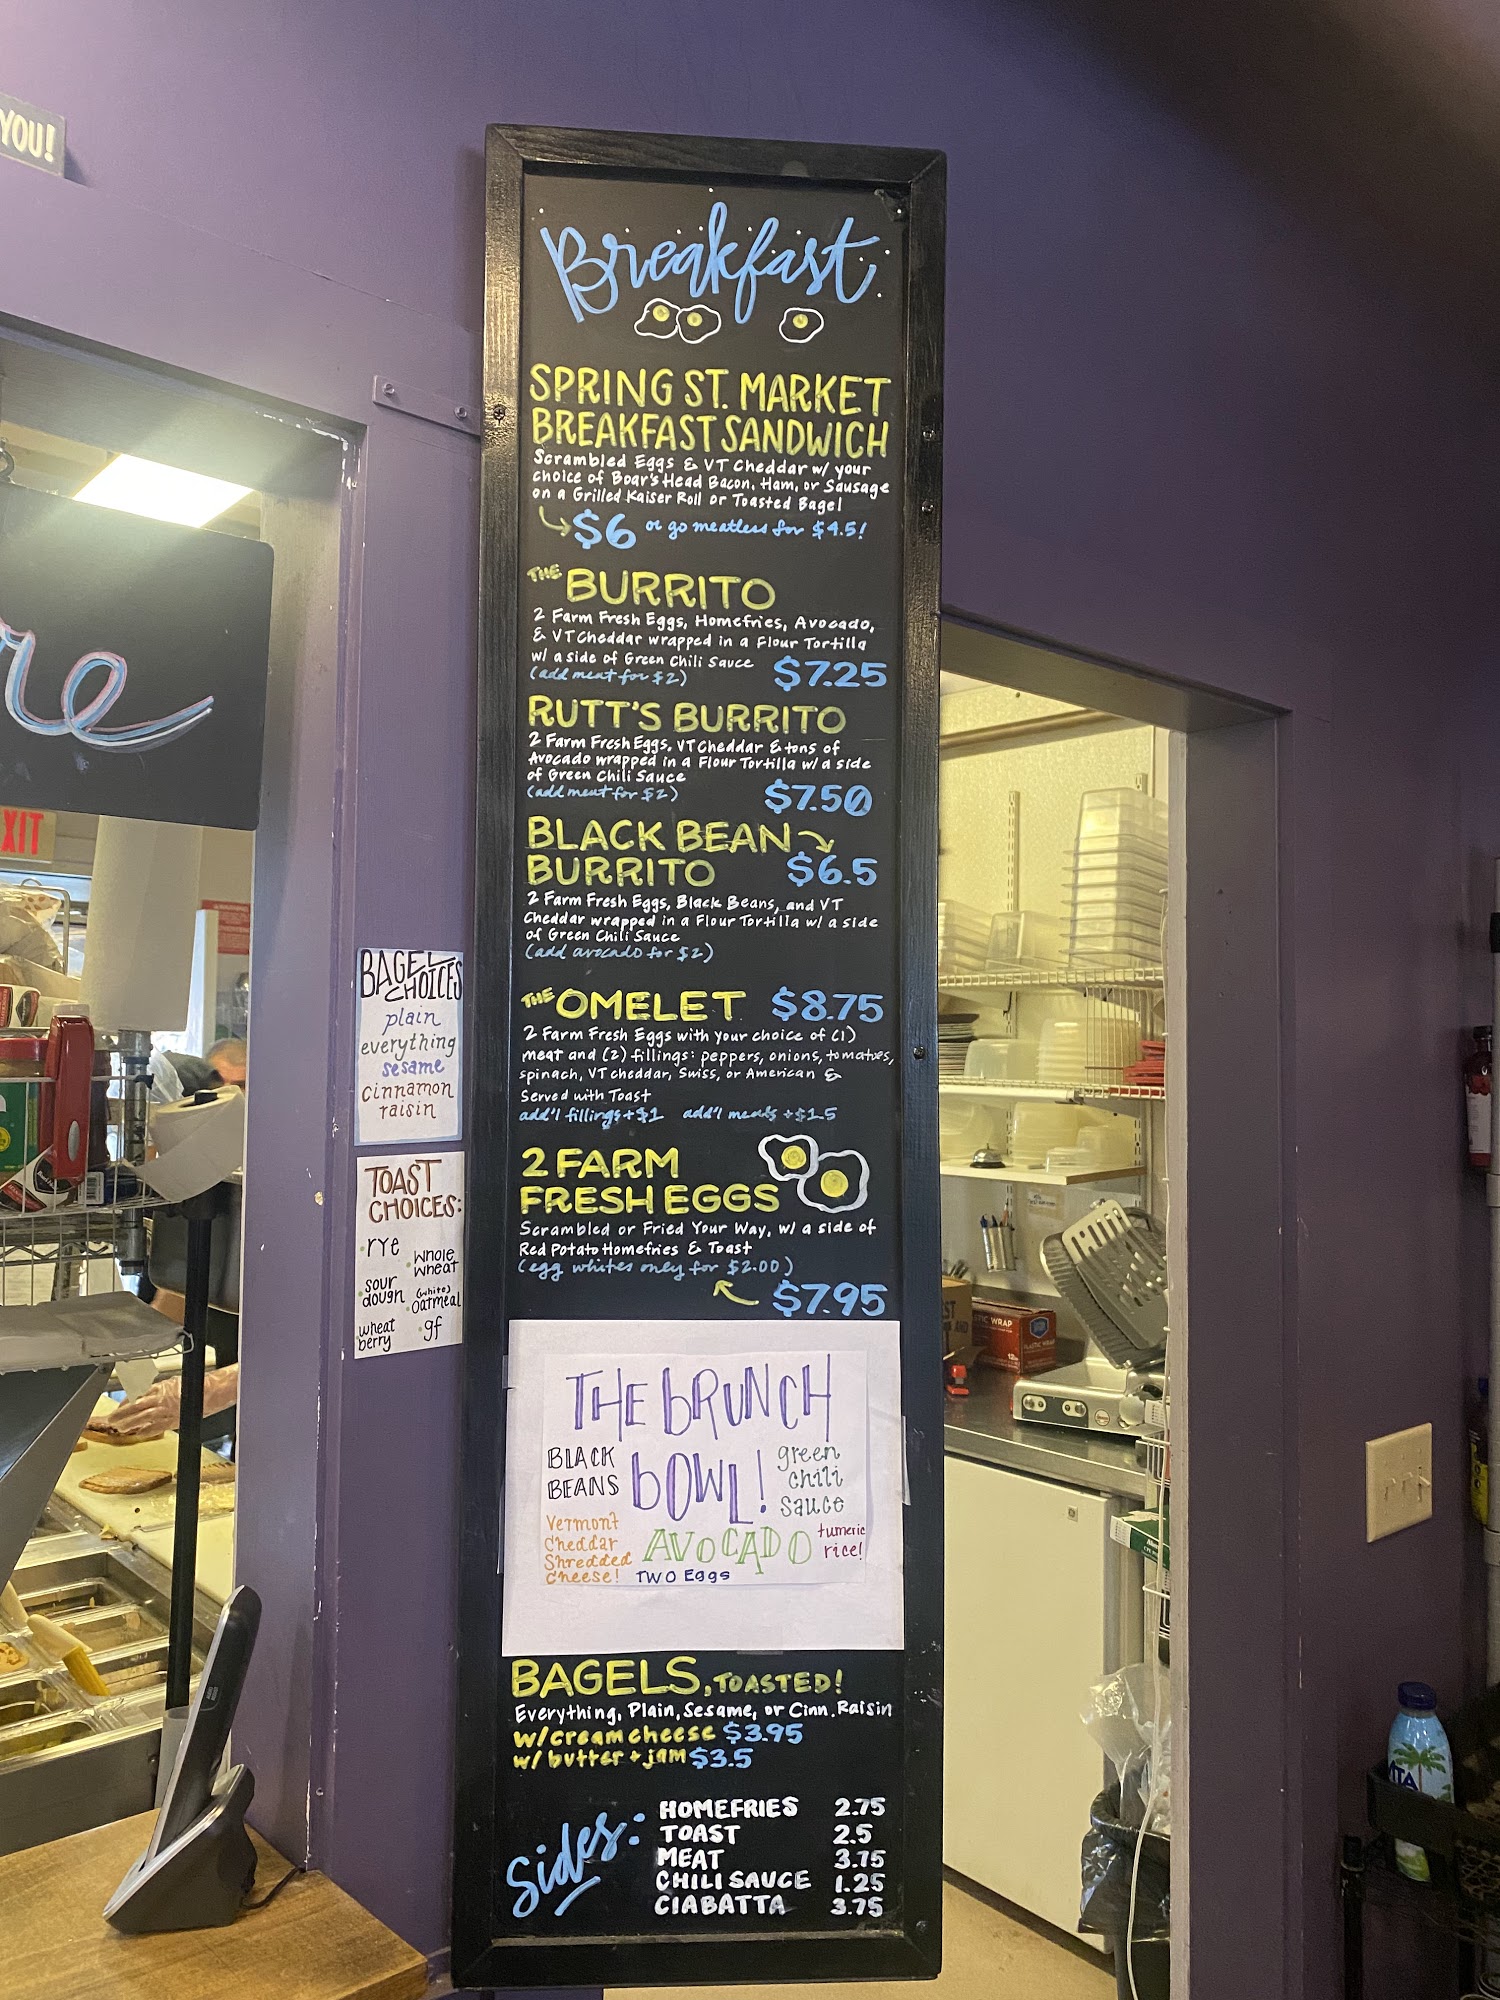 YOU!
Breakfast
SPRING ST. MARKET
BREAKFAST SANDWICH
Scrambled Eggs & VT Cheddar w/ your
choice of Boar's Head Bacon, Ham, or Sausage
on a Grilled Kaiser Roll or Toasted Bagel
$6 or go meatless for $4.5!
THE BURRITO
2 Farm Fresh Eggs, Homefries, Avocado,
& VT Cheddar wrapped in a Flour Tortilla
w/ a side of Green Chili Sauce $7.25
(add meat for $2)
RUTT'S BURRITO
2 Farm Fresh Eggs, VT Cheddar & tons of
Avocado wrapped in a Flour Tortilla w/ a side
of Green Chili Sauce
(add meat for $2) $7.50
BLACK BEAN
BURRITO $6.5
2 Farm Fresh Eggs, Black Beans, and VT
Cheddar wrapped in a Flour Tortilla w/ a side
of Green Chili Sauce
(add avocado for $2)
THE OMELET $8.75
2 Farm Fresh Eggs with your choice of (1)
meat and (2) fillings: peppers, onions, tomatoes,
spinach, VT cheddar, Swiss, or American &
Served with Toast
add'l fillings +$1 add'l meats +$1.5
2 FARM
FRESH EGGS
Scrambled or Fried Your Way, w/ a side of
Red Potato Homefries & Toast
(egg whites only for $2.00)
$7.95
THE bRUNCH
bOWL!
BLACK
BEANS
green
chili
sauce
Vermont
Cheddar
Shredded
cheese!
AVOCADO
tumeric
rice!
TWO Eggs
BAGELS, TOASTED!
Everything, Plain, Sesame, or Cinn. Raisin
w/cream cheese $3.95
w/ butter + jam $3.5
Sides:
HOMEFRIES 2.75
TOAST 2.5
MEAT 3.75
CHILI SAUCE 1.25
CIABATTA 3.75
BAGEL
CHOICES
plain
everything
sesame
cinnamon
raisin
TOAST
CHOICES:
rye
whole
wheat
sour
dough
(white)
oatmeal
wheat
berry
gf
re
XIT
PLASTIC WRAP